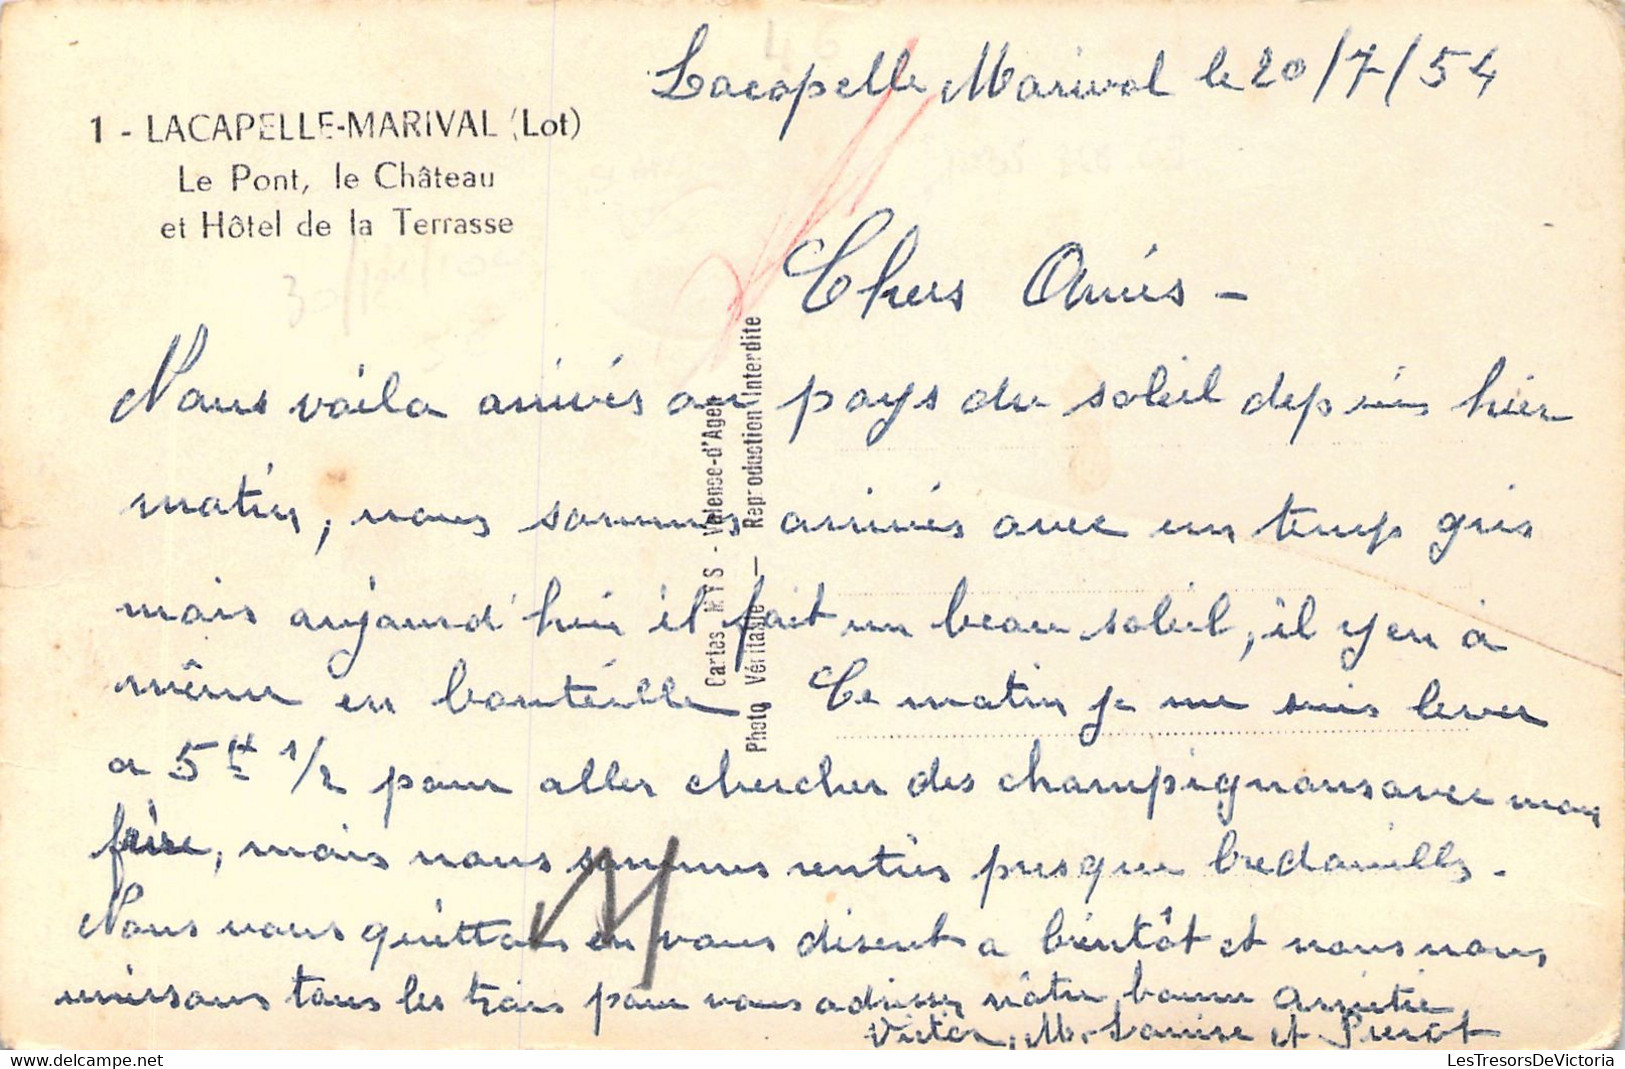 Lacapelle Marival le 20/7/54
1 - LACAPELLE-MARIVAL (Lot)
Le Pont, le Château
et Hôtel de la Terrasse
Chers Amis -
Nous voila arrivés au pays du soleil depuis hier
matin, nous sommes arrivés avec un temp gris
mais aujourd'hui il fait un beau soleil, il y en a
même en bouteille Ce matin je me suis lever
a 5H 1/2 pour aller chercher des champignons avec mon
frère, mais nous sommes rentrés presque bredouilles.
Nous vous quittons en vous disent a bientôt et nous nous
unissons tous les trois pour vous adresser nôtre bonne Amitié
Victor, M. Louise et Pierrot
Cartes MYS - Valence-d'Agen
Photo Véritable — Reproduction Interdite
LesTresorsDeVictoria.com